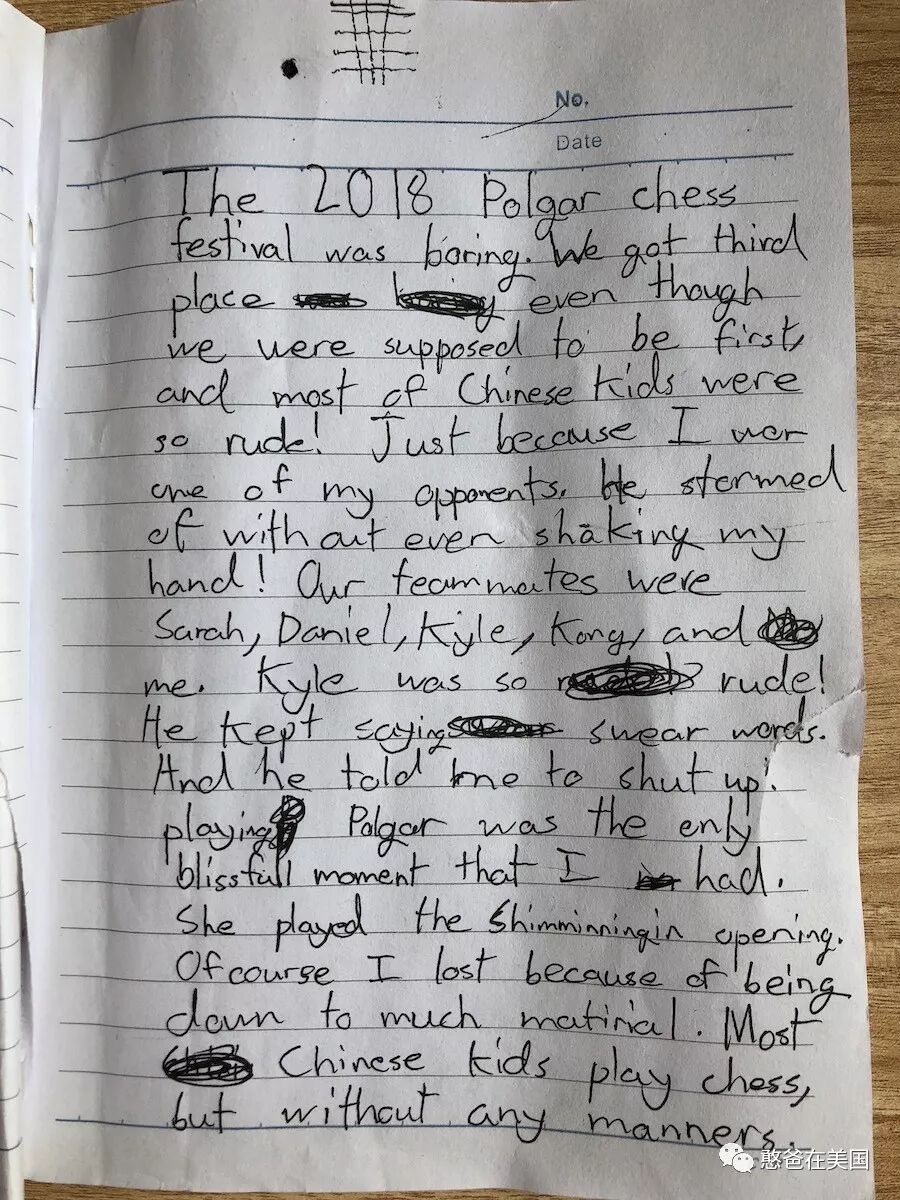 No.
Date
The 2018 Polgar chess
festival was boring. We got third
place even though
we were supposed to be first,
and most of Chinese kids were
so rude! Just because I won
one of my opponents. He stormed
of without even shaking my
hand! Our teammates were
Sarah, Daniel, Kyle, Kong, and
me. Kyle was so rude!
He kept saying swear words.
And he told me to shut up!
playing Polgar was the only
blissfull moment that I had.
She played the Shimminningin opening.
Of course I lost because of being
down to much matirial. Most
Chinese kids play chess,
but without any manners.
憨爸在美国